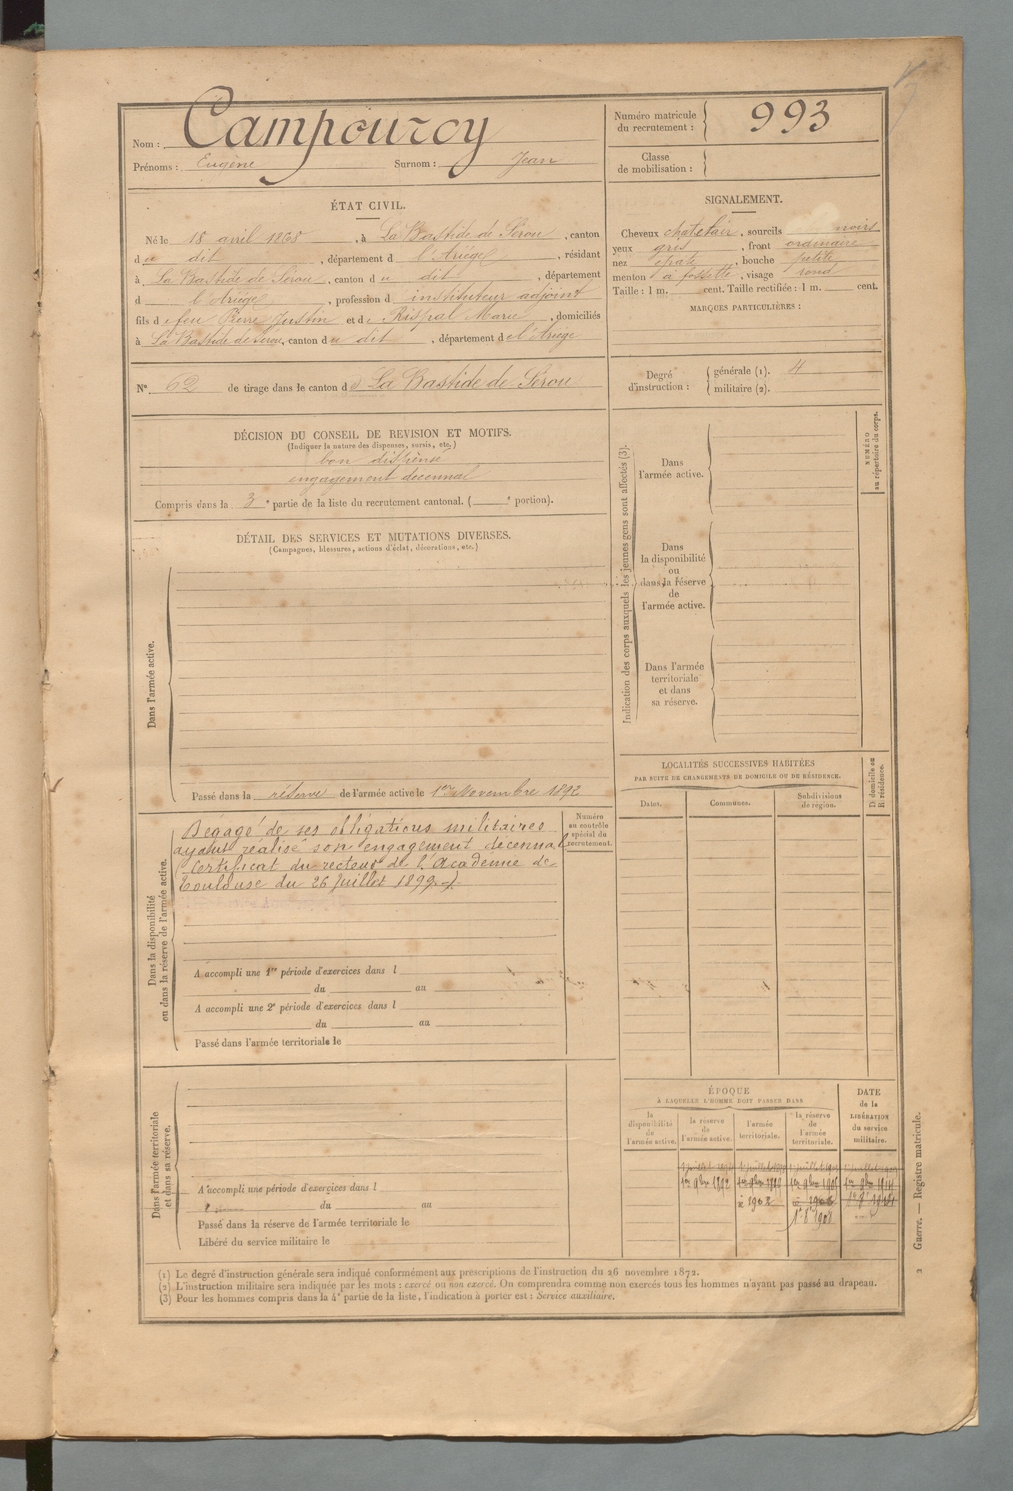 Nom : Campourcy
Prénoms : Eugène Surnom : Jean
Numéro matricule du recrutement : 993
Classe de mobilisation :
ÉTAT CIVIL.
Né le 18 avril 1868, à La Bastide de Sérou, canton
du dit, département d l'Ariège, résidant
à La Bastide de Sérou, canton du dit, département
d l'Ariège, profession d instituteur adjoint
fils de feu Pierre Justin et de Rispal Marie, domiciliés
à La Bastide de Sérou, canton du dit, département de l'Ariège
N° 62 de tirage dans le canton d La Bastide de Sérou
SIGNALEMENT.
Cheveux chatclair, sourcils noirs
yeux gris, front ordinaire
nez épaté, bouche petite
menton à fossette, visage rond
Taille : 1 m. cent. Taille rectifiée : 1 m. cent.
MARQUES PARTICULIÈRES :
Degré d'instruction : générale (1). 4
militaire (2).
DÉCISION DU CONSEIL DE REVISION ET MOTIFS.
(Indiquer la nature des dispenses, sursis, etc.)
bon dispensé
engagement décennal
Compris dans la 3e partie de la liste du recrutement cantonal. ( e portion).
DÉTAIL DES SERVICES ET MUTATIONS DIVERSES.
(Campagnes, blessures, actions d'éclat, décorations, etc.)
Dans l'armée active.
Passé dans la réserve de l'armée active le 1er Novembre 1892
Indication des corps auxquels les jeunes gens sont affectés (3).
Dans l'armée active.
Dans la disponibilité ou dans la réserve de l'armée active.
Dans l'armée territoriale et dans sa réserve.
NUMÉRO au répertoire du corps.
Dans la disponibilité ou dans la réserve de l'armée active.
Numéro au contrôle spécial du recrutement.
Dégagé de ses obligations militaires
ayant réalisé son engagement décennal
(Certificat du recteur de l'Académie de
Toulouse du 26 Juillet 1899.)
A accompli une 1re période d'exercices dans l
du au
A accompli une 2e période d'exercices dans l
du au
Passé dans l'armée territoriale le
LOCALITÉS SUCCESSIVES HABITÉES
PAR SUITE DE CHANGEMENTS DE DOMICILE OU DE RÉSIDENCE.
Dates. Communes. Subdivisions de région. D. domicile ou R. résidence.
Dans l'armée territoriale et dans sa réserve.
A accompli une période d'exercices dans l
du au
Passé dans la réserve de l'armée territoriale le
Libéré du service militaire le
ÉPOQUE
À LAQUELLE L'HOMME DOIT PASSER DANS
la disponibilité de l'armée active.
la réserve de l'armée active.
l'armée territoriale.
la réserve de l'armée territoriale.
DATE de la LIBÉRATION du service militaire.
1er 9bre 1892
(1) Le degré d'instruction générale sera indiqué conformément aux prescriptions de l'instruction du 26 novembre 1872.
(2) L'instruction militaire sera indiquée par les mots : exercé ou non exercé. On comprendra comme non exercés tous les hommes n'ayant pas passé au drapeau.
(3) Pour les hommes compris dans la 4e partie de la liste, l'indication à porter est : Service auxiliaire.
Guerre. — Registre matricule.
2